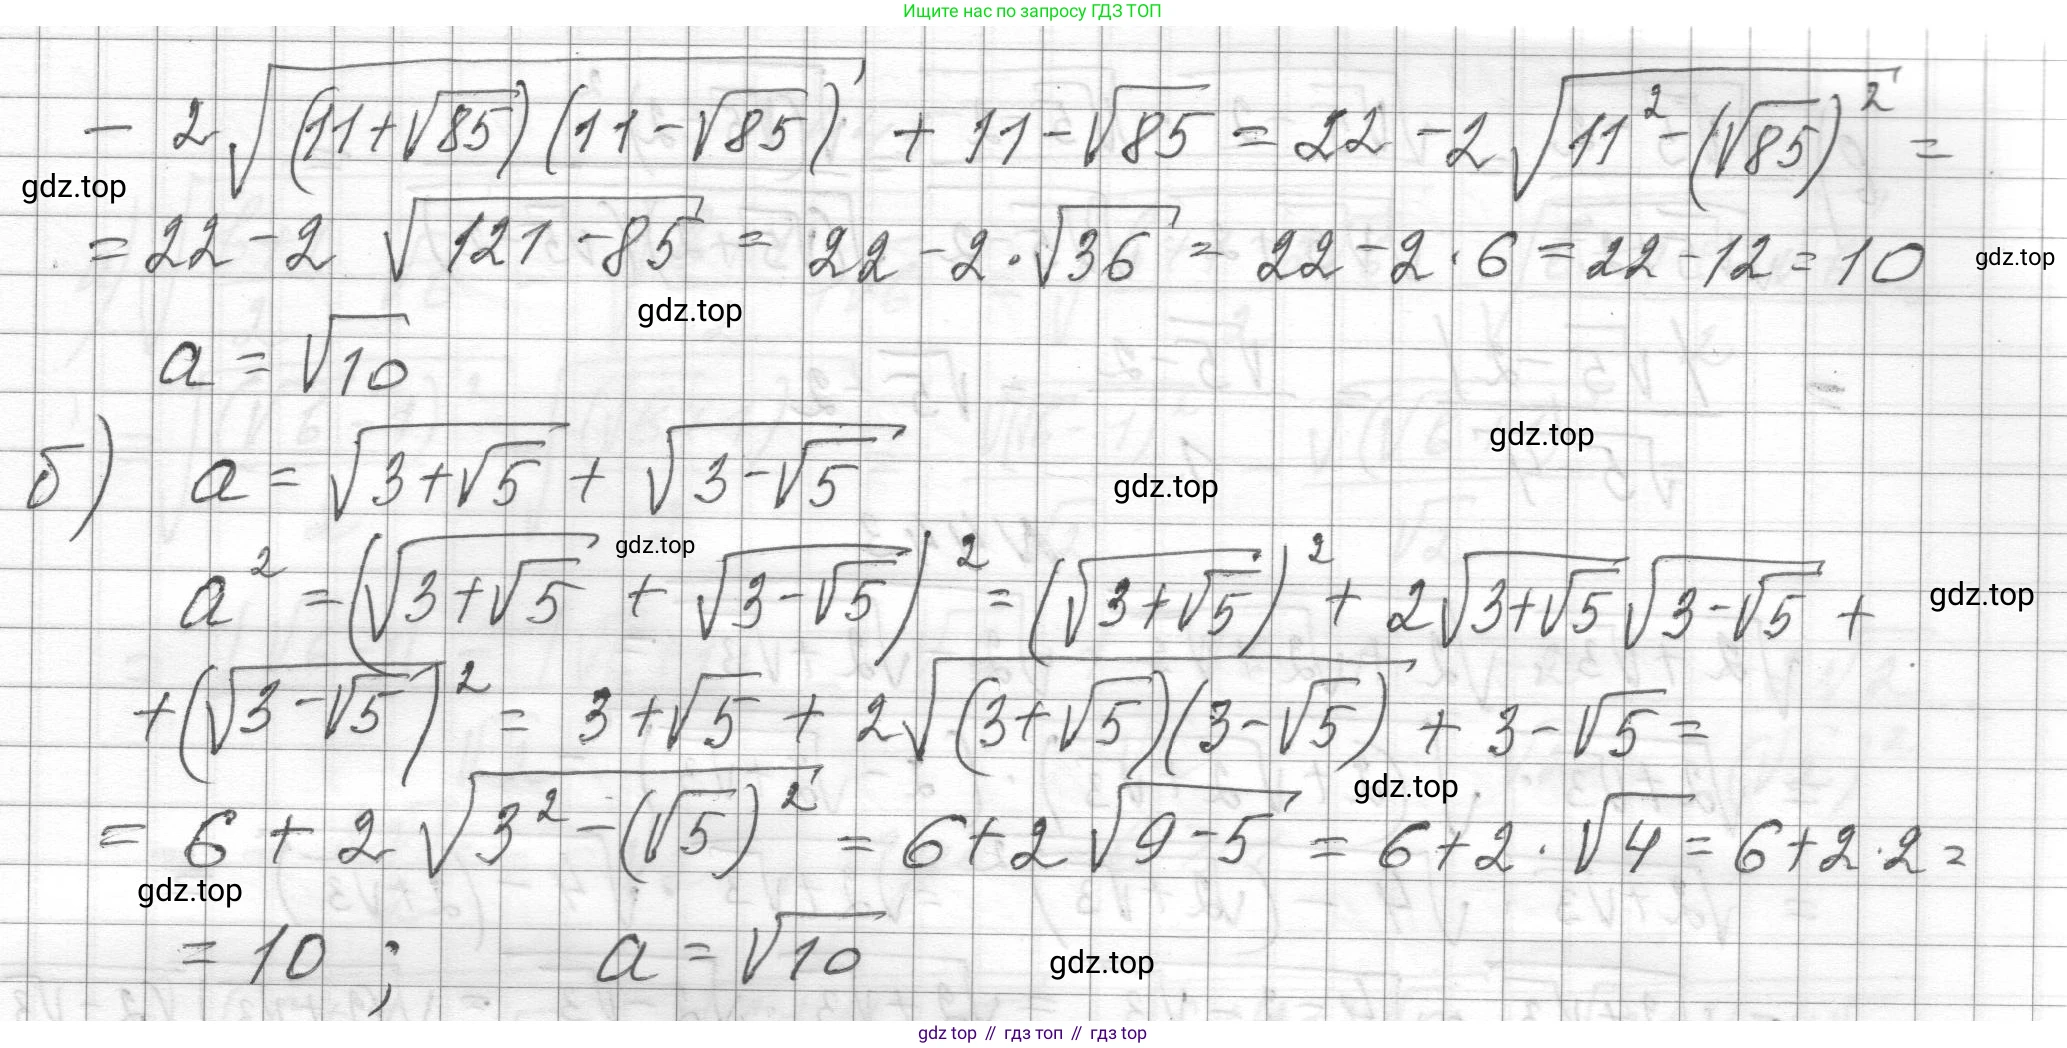 Ищите нас по запросу ГДЗ ТОП
- 2√((11+√85)(11-√85)) + 11-√85 = 22 -2√(11²-(√85)²) =
gdz.top
= 22 - 2 √(121-85) = 22 - 2·√36 = 22-2·6 = 22-12 = 10
gdz.top
gdz.top
a = √10
gdz.top
б) a = √(3+√5) + √(3-√5)
gdz.top
gdz.top
a² = (√(3+√5) + √(3-√5))² = (√(3+√5))² + 2√(3+√5)√(3-√5) +
gdz.top
+(√(3-√5))² = 3+√5 + 2√((3+√5)(3-√5)) + 3-√5 =
gdz.top
= 6 + 2 √(3²-(√5)²) = 6+2√(9-5) = 6+2·√4 = 6+2·2 =
gdz.top
= 10 ; a = √10
gdz.top
gdz top // гдз топ // гдз top